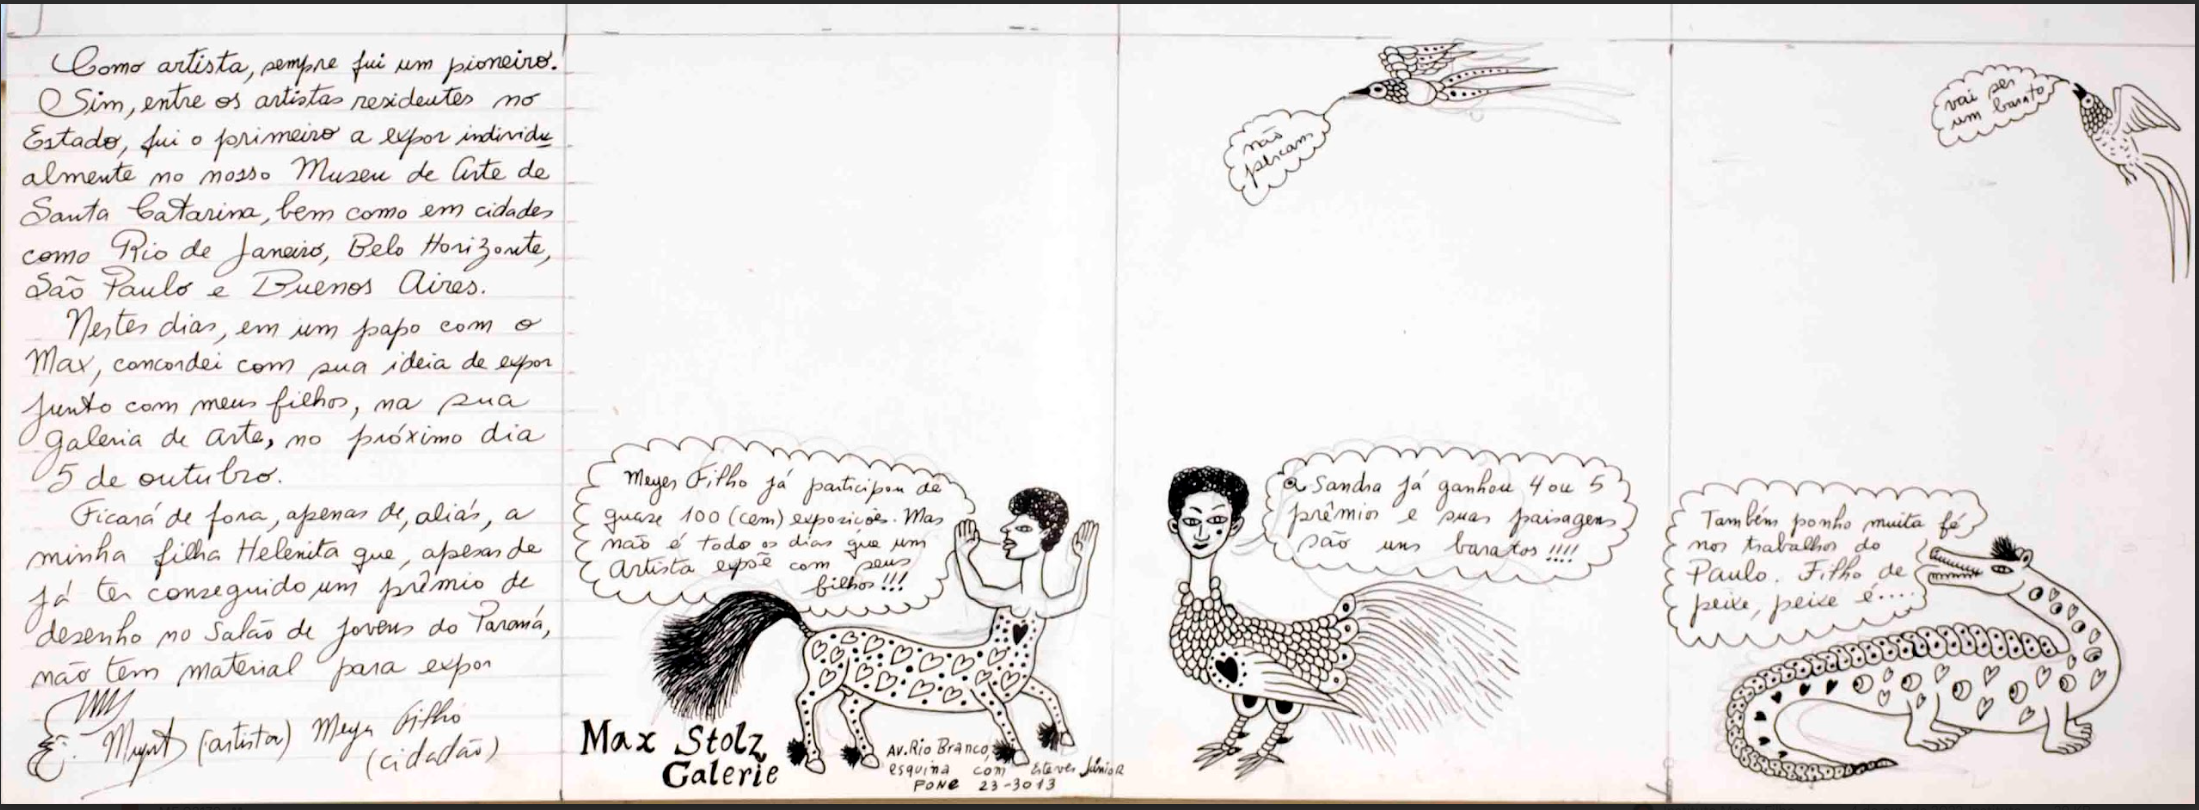 Como artista, sempre fui um pioneiro.
Sim, entre os artistas residentes no
Estado, fui o primeiro a expor individu
almente no nosso Museu de Arte de
Santa Catarina, bem como em cidades
como Rio de Janeiro, Belo Horizonte,
São Paulo e Buenos Aires.
Nestes dias, em um papo com o
Max, concordei com sua ideia de expor
junto com meus filhos, na sua
galeria de arte, no próximo dia
5 de outubro.
Ficará de fora, apenas de, aliás, a
minha filha Helenita que, apesar de
já ter conseguido um prêmio de
desenho no Salão de Jovens do Paraná,
não tem material para expor
(artista) Meyer Filho
(cidadão)
Meyer Filho já participou de
quase 100 (cem) exposicões. Mas
não é todo os dias que um
Artista expõe com seus
filhos!!!
Max Stolz
Galerie
Av. Rio Branco,
esquina com Esteves Júnior
FONE 23-3013
não
percam
A Sandra já ganhou 4 ou 5
prêmios e suas paisagens
são uns baratos!!!!
vai ser
um barato
Também ponho muita fé
nos trabalhos do
Paulo. Filho de
peixe, peixe é....